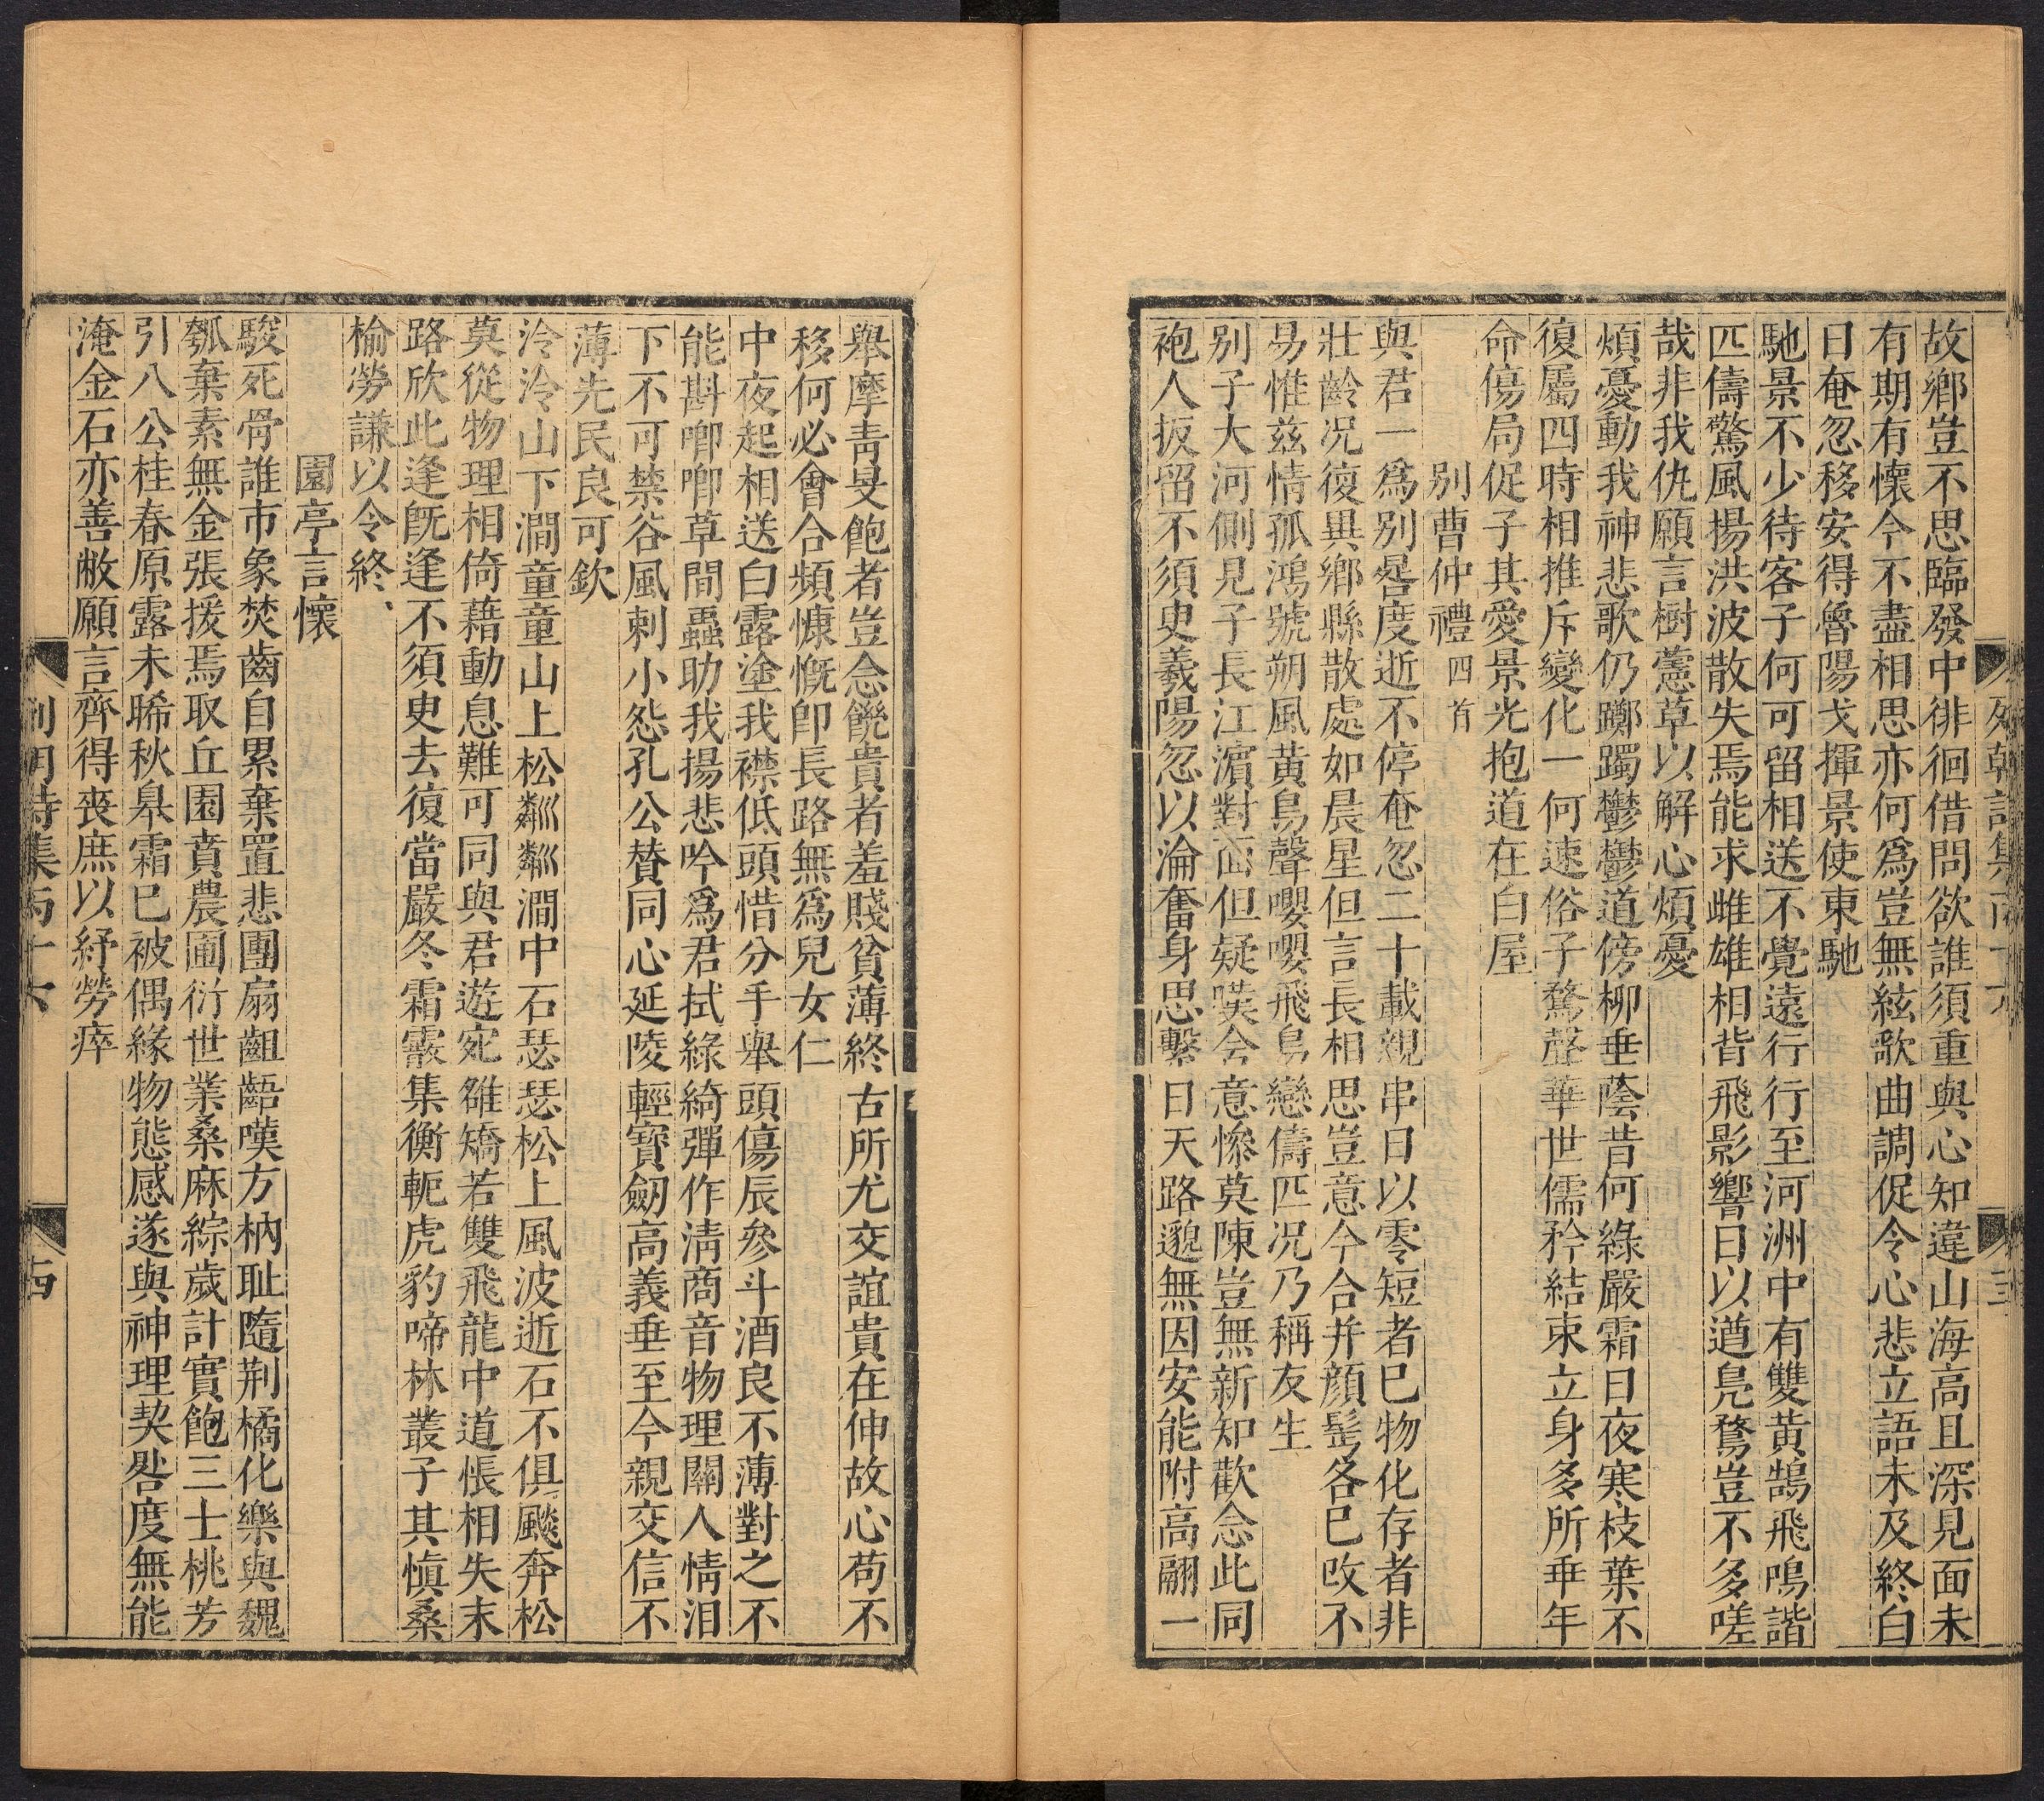 故鄉豈不思臨發中徘徊借問欲誰須重與心知違山海高且深見面未
有期有懷今不盡相思亦何爲豈無絃歌曲調促令心悲立語未及終白
日奄忽移安得魯陽戈揮景使東馳
馳景不少待客子何可留相送不覺遠行行至河洲中有雙黃鵠飛鳴諧
匹儔驚風揚洪波散失焉能求雌雄相背飛影響日以遒鳧鶩豈不多嗟
哉非我仇願言樹萱草以解心煩憂
煩憂動我神悲歌仍躑躅鬱鬱道傍柳垂蔭昔何綠嚴霜日夜寒枝葉不
復屬四時相推斥變化一何速俗子騖聲華世儒矜結束立身多所垂年
命傷局促子其愛景光抱道在白屋
別曹仲禮四首
與君一爲別晷度逝不停奄忽二十載親串日以零短者巳物化存者非
壯齡况復異鄉縣散處如晨星但言長相思豈意今合并顏髩各巳改不
易惟茲情孤鴻號朔風黃鳥聲嚶嚶飛鳥戀儔匹况乃稱友生
別子大河側見子長江濵對面但疑嘆含意慘莫陳豈無新知歡念此同
袍人扳留不須臾羲陽忽以淪奮身思繫日天路邈無因安能附高翮一
舉摩靑旻飽者豈念饑貴者羞賤貧薄終古所尤交誼貴在伸故心苟不
移何必會合頻慷慨卽長路無爲兒女仁
中夜起相送白露塗我襟低頭惜分手舉頭傷辰參斗酒良不薄對之不
能斟喞喞草間蟲助我揚悲吟爲君拭綠綺彈作淸商音物理關人情淚
下不可禁谷風刺小怨孔公贊同心延陵輕寶劒高義垂至今親交信不
薄先民良可欽
泠泠山下澗童童山上松粼粼澗中石瑟瑟松上風波逝石不俱飈奔松
莫從物理相倚藉動息難可同與君遊宛雒矯若雙飛龍中道悵相失末
路欣此逢旣逢不須臾去復當嚴冬霜霰集衡軛虎豹啼林叢子其愼桑
榆勞謙以令終
園亭言懷
駿死骨誰市象焚齒自累棄置悲團扇齟齬嘆方枘耻隨荆橘化樂與魏
瓠棄素無金張援焉取丘園賁農圃衍世業桑麻綜歲計實飽三士桃芳
引八公桂春原露未晞秋皋霜巳被偶緣物態感遂與神理契晷度無能
淹金石亦善敝願言齊得喪庶以紓勞瘁